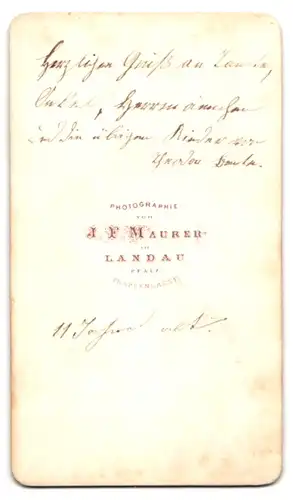 Herzlichen Gruß an Tante,
Onkel, Herrmännchen
und die übrigen Kinder von
PHOTOGRAPHIE
VON
J F MAURER
IN
LANDAU
PFALZ
11 Jahre alt.